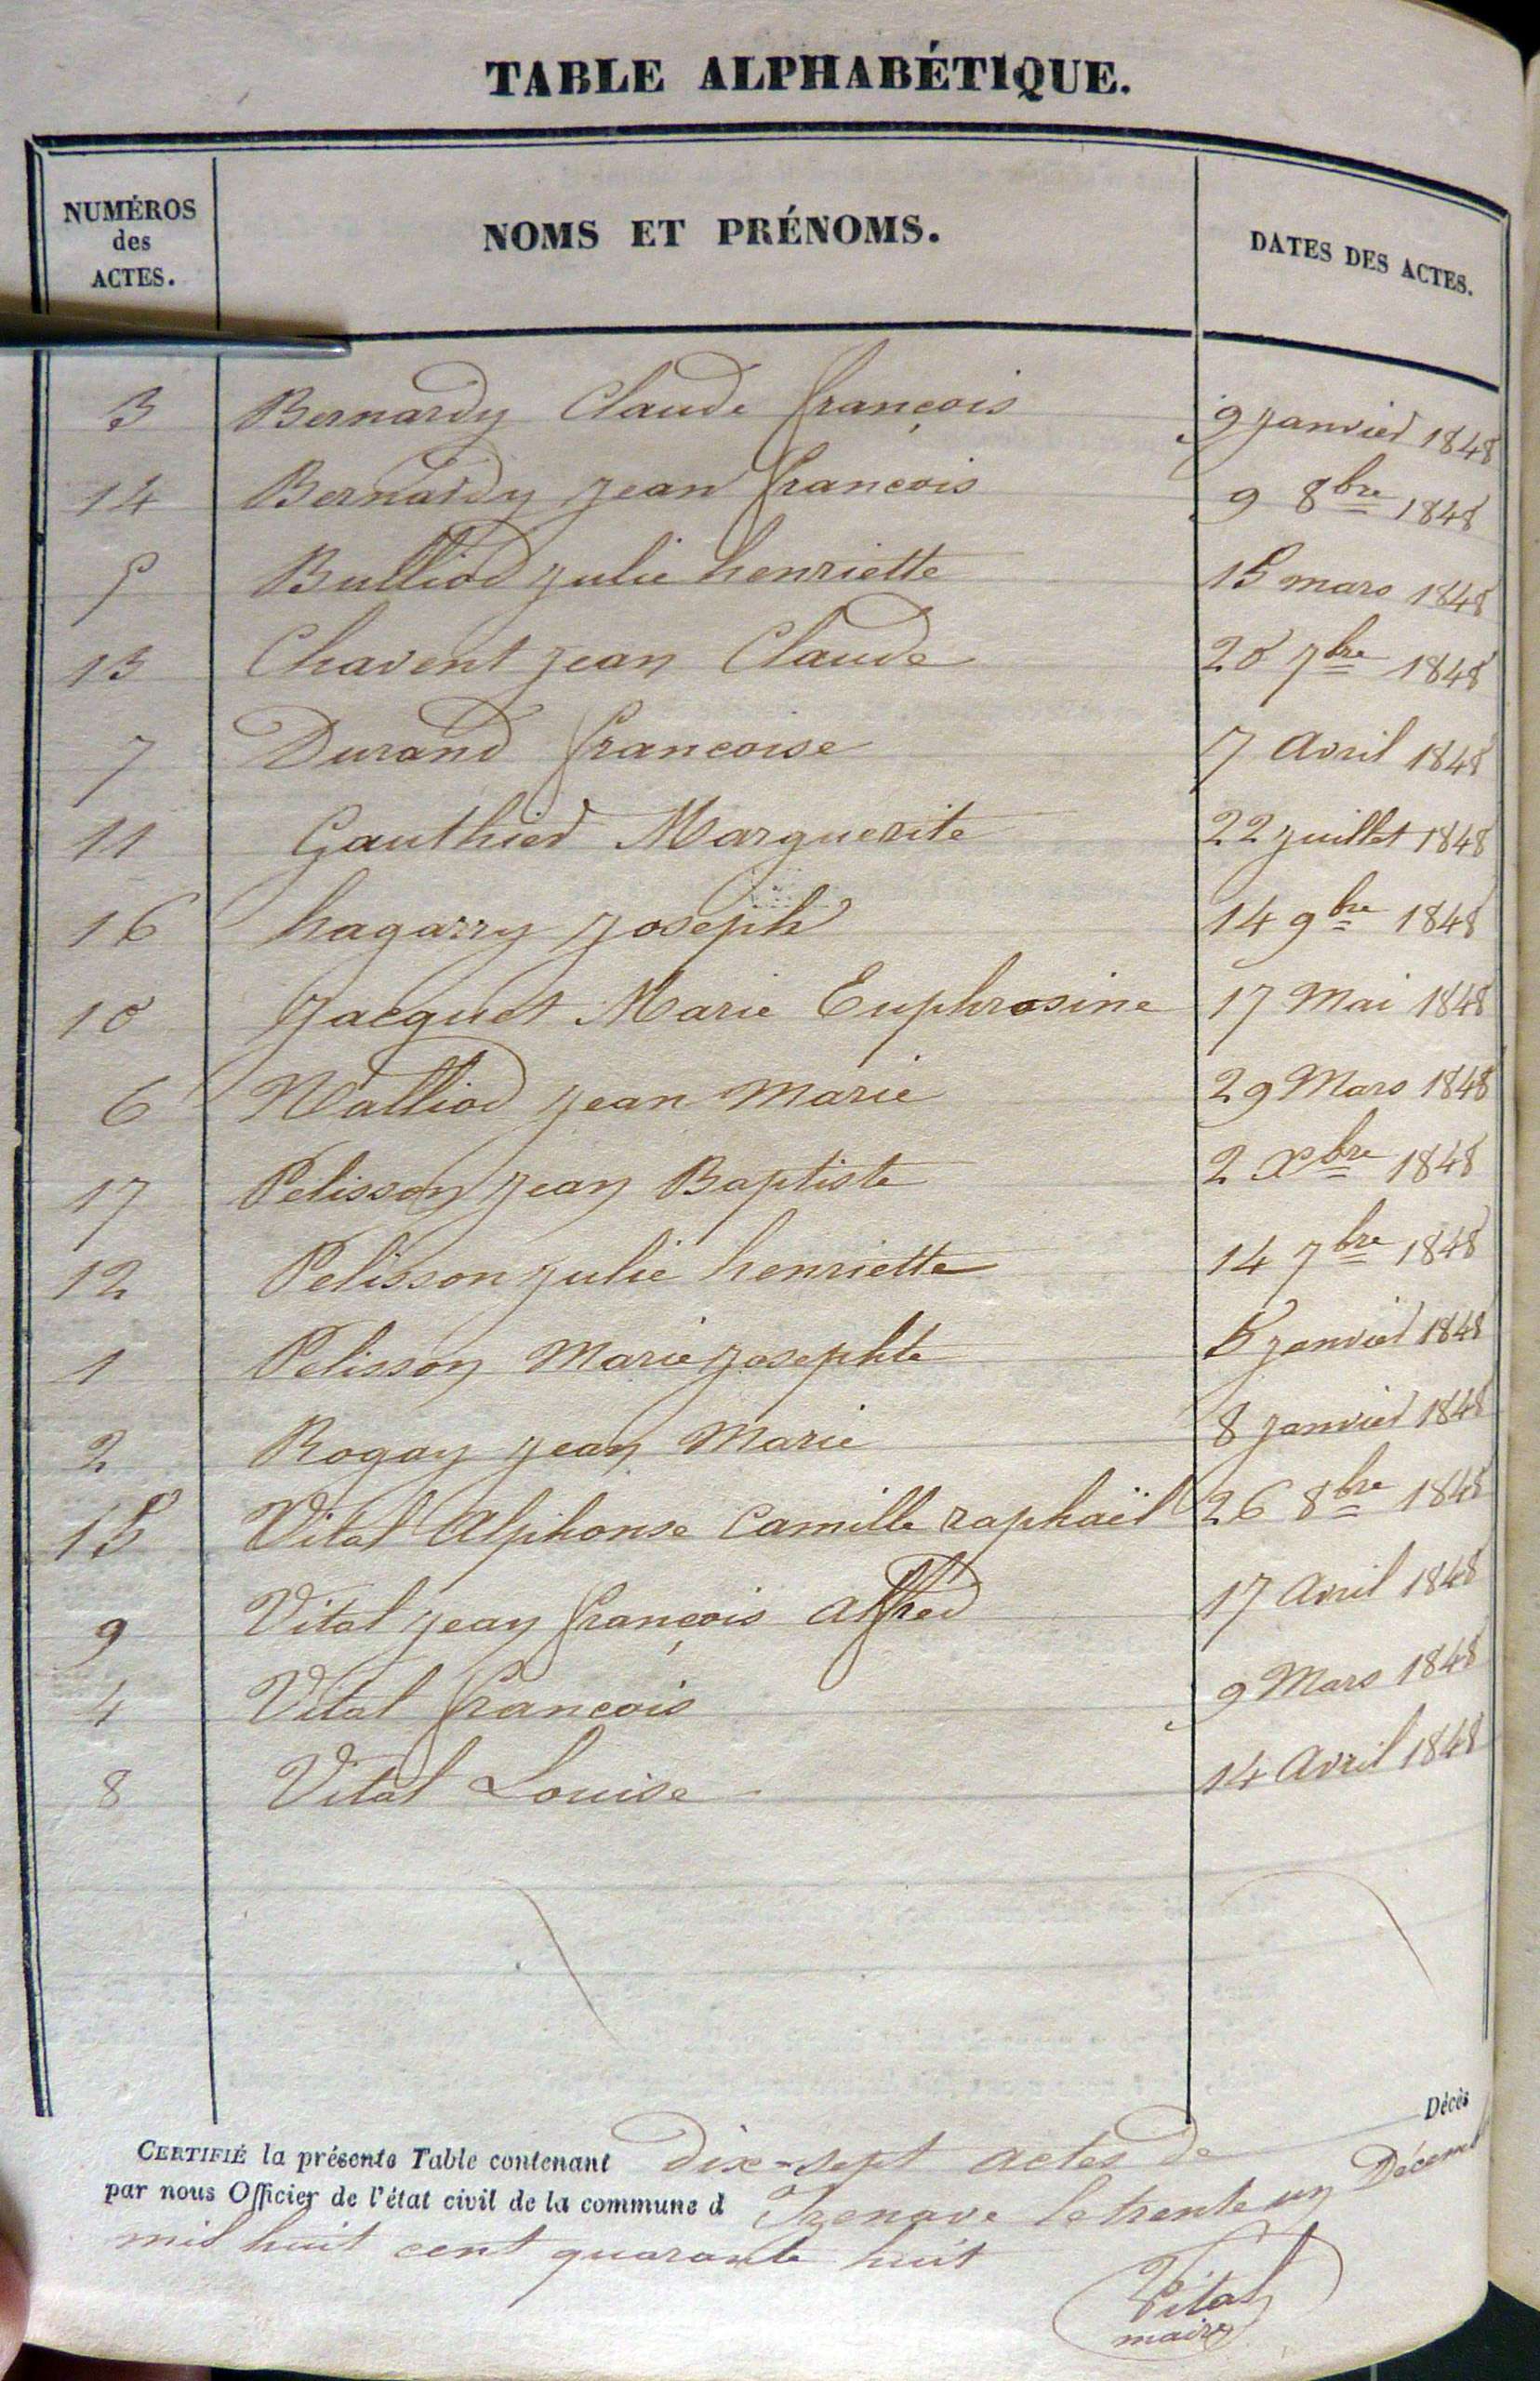 TABLE ALPHABÉTIQUE.
NUMÉROS des ACTES. NOMS ET PRÉNOMS. DATES DES ACTES.
3 Bernardy Claude françois 9 janvier 1848
14 Bernardy jean francois 9 8bre 1848
5 Bulliod julie henriette 15 mars 1848
13 Chavent jean Claude 20 7bre 1848
7 Durand francoise 7 Avril 1848
11 Gauthier Marguerite 22 juillet 1848
16 hagarry joseph 14 9bre 1848
10 Jacquet Marie Euphrosine 17 Mai 1848
6 Nalliod jean Marie 29 Mars 1848
17 Pelisson jean Baptiste 2 Xbre 1848
12 Pelisson julie henriette 14 7bre 1848
1 Pelisson Marie josephte 5 janvier 1848
2 Rogay jean Marie 8 janvier 1848
15 Vital Alphonse Camille raphaël 26 8bre 1848
9 Vital jean françois alfred 17 Avril 1848
4 Vital francois 9 Mars 1848
8 Vital Louise 14 Avril 1848
CERTIFIÉ la présente Table contenant Dix-sept actes de Décès
par nous Officier de l'état civil de la commune d'Izenave le trente un Décemb
mil huit cent quarante huit
Vital
maire